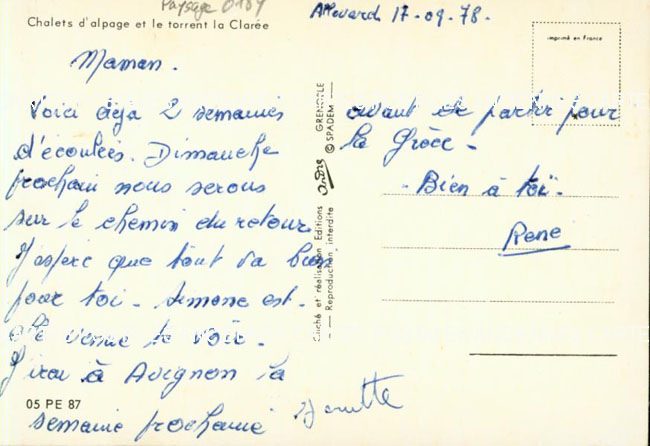 Paysage 0157
Chalets d'alpage et le torrent la Clarée
Allevard 17-09-78-
imprimé en France
Maman.
Voici déja 2 semaines
d'écoulées. Dimanche
prochain nous serons
sur le chemin du retour
J'espère que tout va bien
pour toi - Simone est-
elle venue te voir -
J'irai à Avignon la
semaine prochaine
05 PE 87
avant de partir pour
la Grèce -
- Bien à toi -
Rene
Cliché et réalisation Editions GRENOBLE
Reproduction interdite © SPADEM